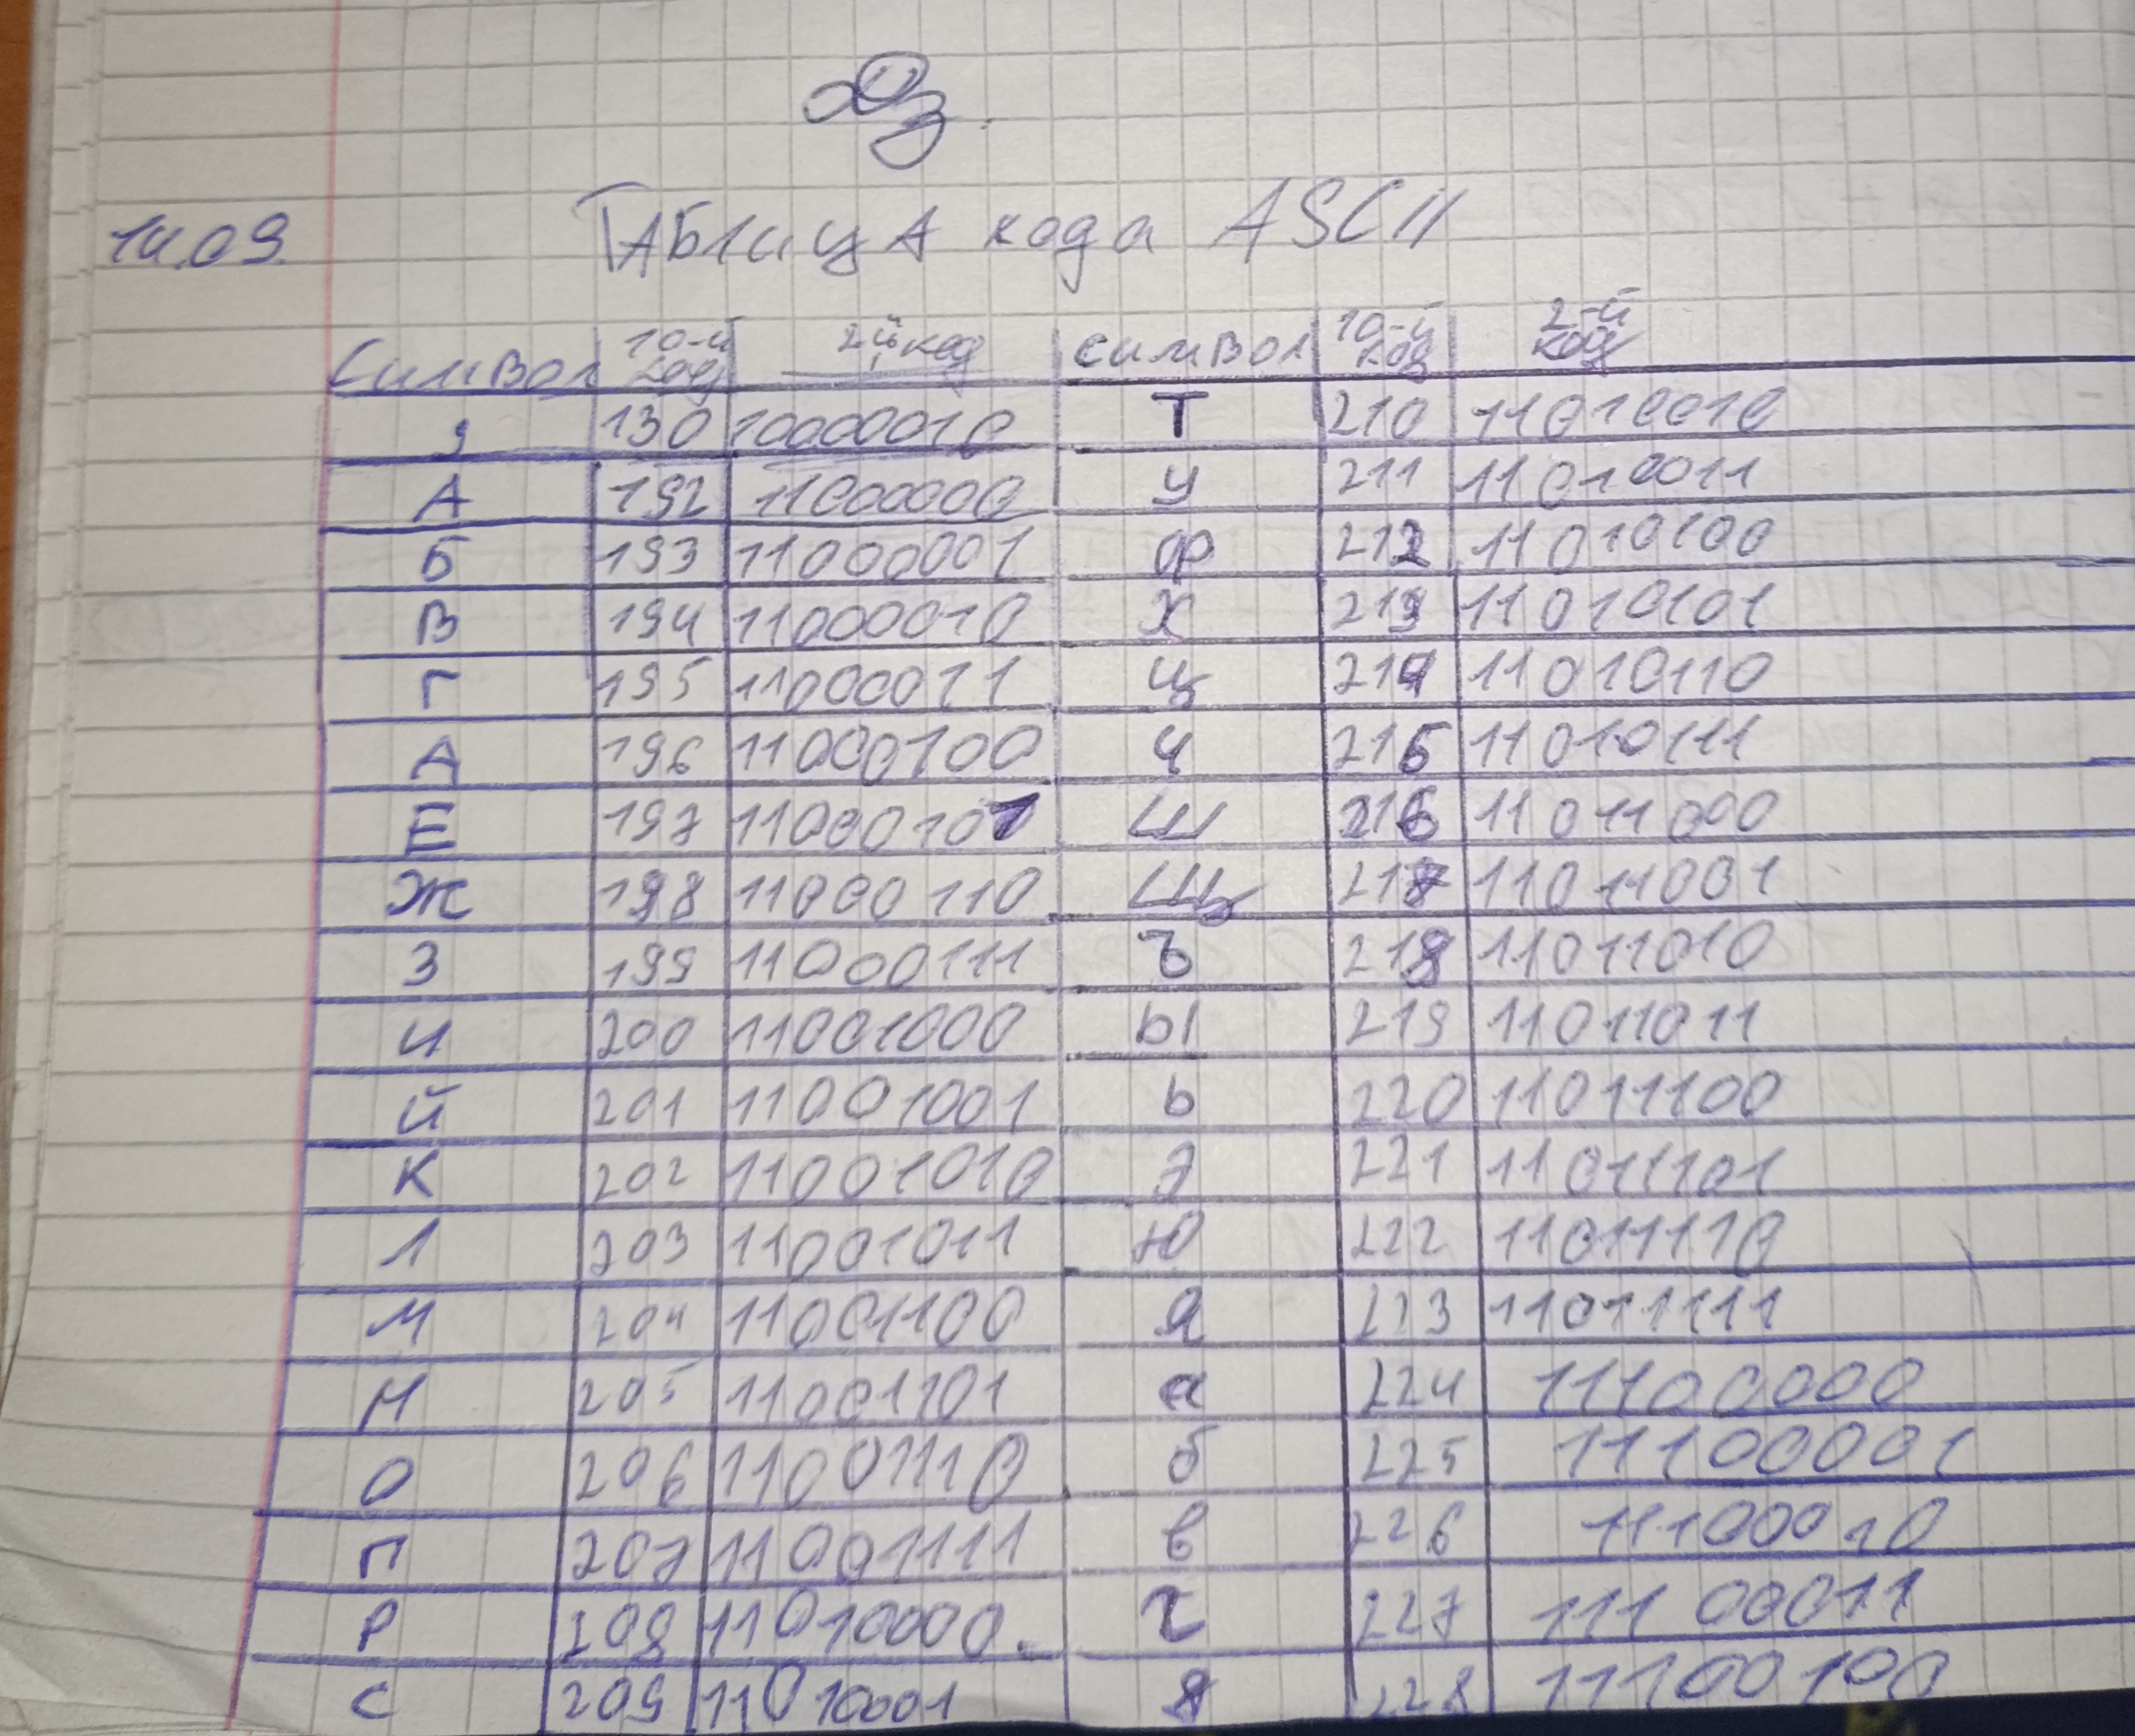 Дз.
14.09 Таблица кода ASCII
Символ 10-й код 2й код символ 10-й код 2-й код
, 130 10000010 Т 210 11010010
А 192 11000000 У 211 11010011
Б 193 11000001 Ф 212 11010100
В 194 11000010 Х 213 11010101
Г 195 11000011 Ц 214 11010110
Д 196 11000100 Ч 215 11010111
Е 197 11000101 Ш 216 11011000
Ж 198 11000110 Щ 217 11011001
З 199 11000111 Ъ 218 11011010
И 200 11001000 Ы 219 11011011
Й 201 11001001 Ь 220 11011100
К 202 11001010 Э 221 11011101
Л 203 11001011 Ю 222 11011110
М 204 11001100 Я 223 11011111
Н 205 11001101 а 224 11100000
О 206 11001110 б 225 11100001
П 207 11001111 в 226 11100010
Р 208 11010000. г 227 11100011
С 209 11010001 228 11100100